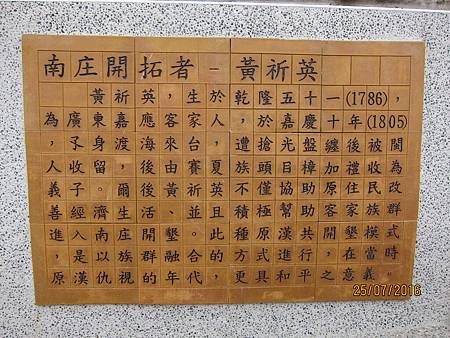 南庄開拓者－黃祈英
黃祈英，生於乾隆五十一(1786)，
為廣東嘉應客家人，於嘉慶十年(1805)
，孑身渡海來台，遭搶光盤纏後被閩
人收留，後由賽夏族頭目樟加禮收為
義子。爾後黃祈英不僅協助原住民改
善經濟生活、並且積極幫助客家族群
進入南庄開墾。此種原漢共開墾模式
，是以族群融合的方式進行，在當時
原漢仇視的年代，更具和平之意義。
25/07/2016